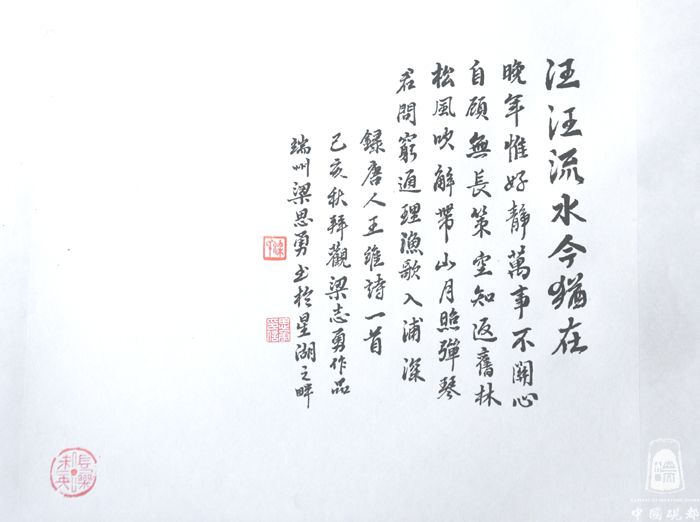 汪汪流水今猶在
晚年惟好靜萬事不關心
自顧無長策空知返舊林
松風吹解帶山月照彈琴
君問窮通理漁歌入浦深
錄唐人王維詩一首
己亥秋拜觀梁志勇作品
端州梁思勇書於星湖之畔
中國硯都